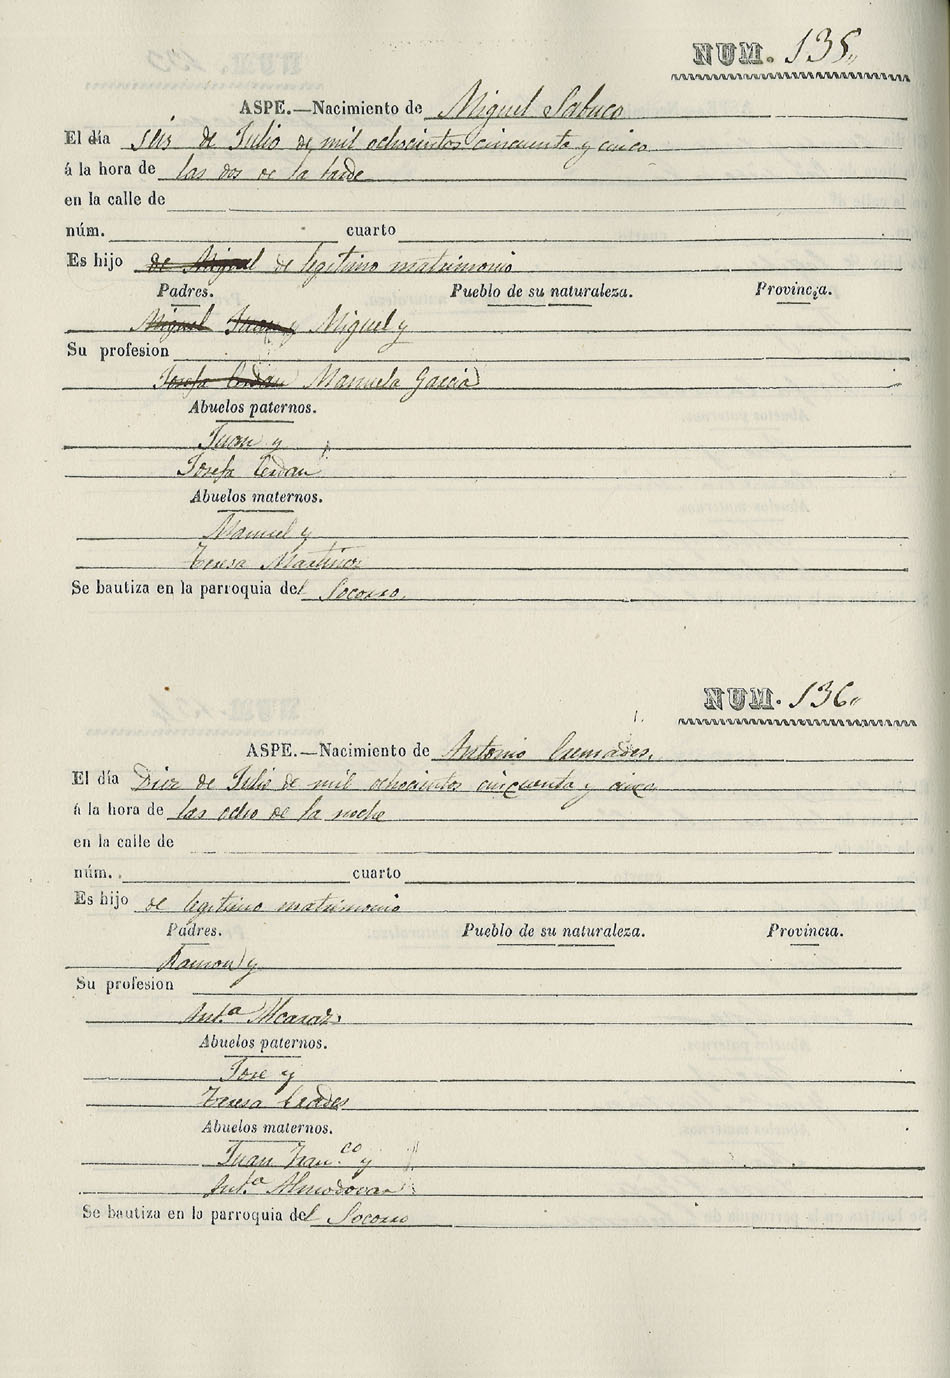 NUM. 135,,
ASPE.—Nacimiento de Miguel Sabuco
El día seis de Julio de mil ochocientos cincuenta y cinco
á la hora de las dos de la tarde
en la calle de
núm. cuarto
Es hijo de Miguel de legitimo matrimonio
Padres. Pueblo de su naturaleza. Provincia.
Miguel Juan y Miguel y
Su profesion
Josefa Cerdan Manuela Garcia
Abuelos paternos.
Juan y
Josefa Cerdan
Abuelos maternos.
Manuel y
Teresa Martinez
Se bautiza en la parroquia del Socorro.
NUM. 136,,
ASPE.—Nacimiento de Antonio Cremades.
El día Diez de Julio de mil ochocientos cincuenta y cinco
á la hora de las ocho de la noche
en la calle de
núm. cuarto
Es hijo de legitimo matrimonio
Padres. Pueblo de su naturaleza. Provincia.
Ramon y
Su profesion
Ant.ª Alcaraz
Abuelos paternos.
Jose y
Teresa
Abuelos maternos.
Juan Fran.co y
Ant.ª Almodovar
Se bautiza en la parroquia del Socorro